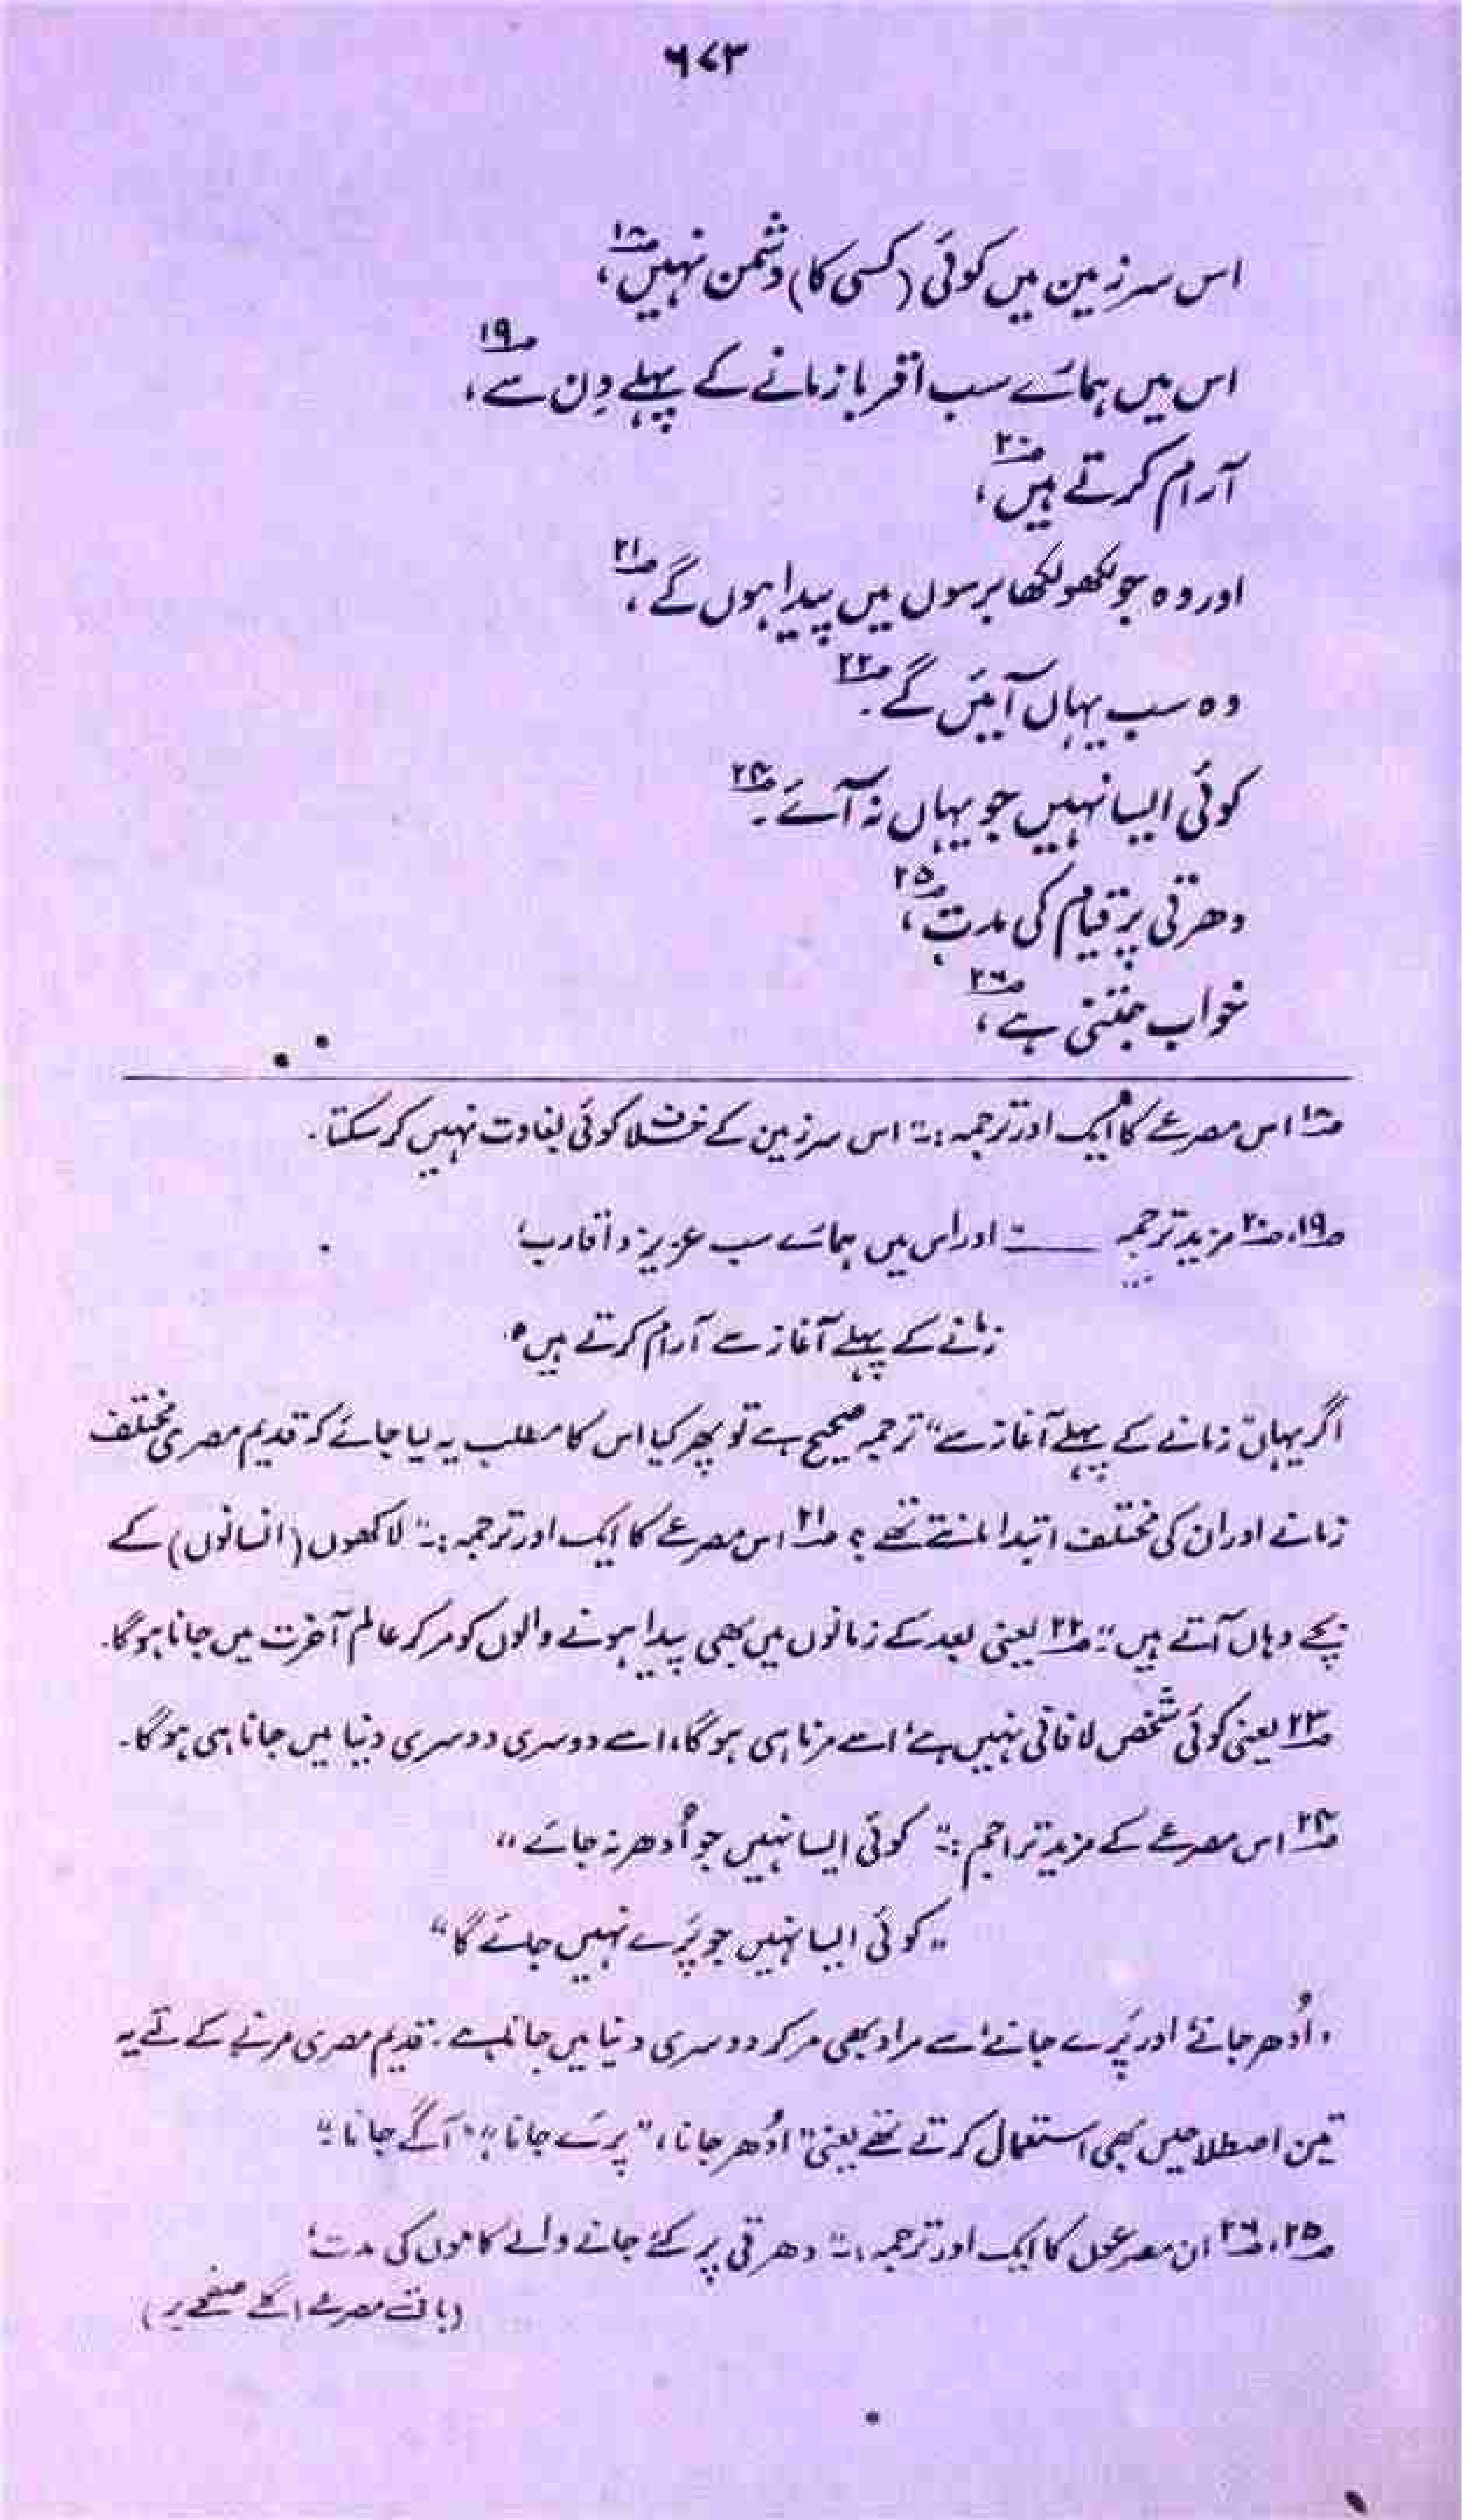 ۶۷۳
اس سرزمین میں کوئی (کسی کا) دشمن نہیں ۱۸؎،
اس میں ہمارے سب اقربا زمانے کے پہلے دِن سے ۱۹؎،
آرام کرتے ہیں ۲۰؎،
اور وہ جو لکھو لکھا برسوں میں پیدا ہوں گے ۲۱؎،
وہ سب یہاں آئیں گے ۲۲؎۔
کوئی ایسا نہیں جو یہاں نہ آئے ۲۴؎۔
دھرتی پر قیام کی مدت ۲۵؎،
خواب جتنی ہے ۲۶؎،
۱۸؎ اس مصرعے کا ایک اور ترجمہ:۔" اس سرزمین کے خلاف کوئی بغاوت نہیں کر سکتا۔
۱۹؎، ۲۰؎ مزید ترجمہ ــــــ " اور اس میں ہمارے سب عزیز و اقارب،
زمانے کے پہلے آغاز سے آرام کرتے ہیں"
اگر یہاں "زمانے کے پہلے آغاز سے" ترجمہ صحیح ہے تو پھر کیا اس کا مطلب یہ لیا جائے کہ قدیم مصری مختلف
زمانے اور ان کی مختلف ابتدا مانتے تھے؟ ۲۱؎ اس مصرعے کا ایک اور ترجمہ:۔" لاکھوں (انسانوں) کے
بچے وہاں آتے ہیں"۔ ۲۲؎ یعنی بعد کے زمانوں میں بھی پیدا ہونے والوں کو مر کر عالم آخرت میں جانا ہوگا۔
۲۳؎ یعنی کوئی شخص لافانی نہیں ہے، اسے مرنا ہی ہوگا، اسے دوسری دوسری دنیا میں جانا ہی ہوگا۔
۲۴؎ اس مصرعے کے مزید تراجم:۔" کوئی ایسا نہیں جو اُدھر نہ جائے"
"کوئی ایسا نہیں جو پَرے نہیں جائے گا"
'اُدھر جانے' اور 'پَرے جانے' سے مراد بھی مر کر دوسری دنیا میں جانا ہے۔ قدیم مصری مرنے کے لئے یہ
تین اصطلاحیں بھی استعمال کرتے تھے یعنی "اُدھر جانا"، "پرے جانا"، "آگے جانا"۔
۲۵؎، ۲۶؎ ان مصرعوں کا ایک اور ترجمہ:۔" دھرتی پر کئے جانے والے کاموں کی مدت،
(باقی مصرعے اگلے صفحے پر)